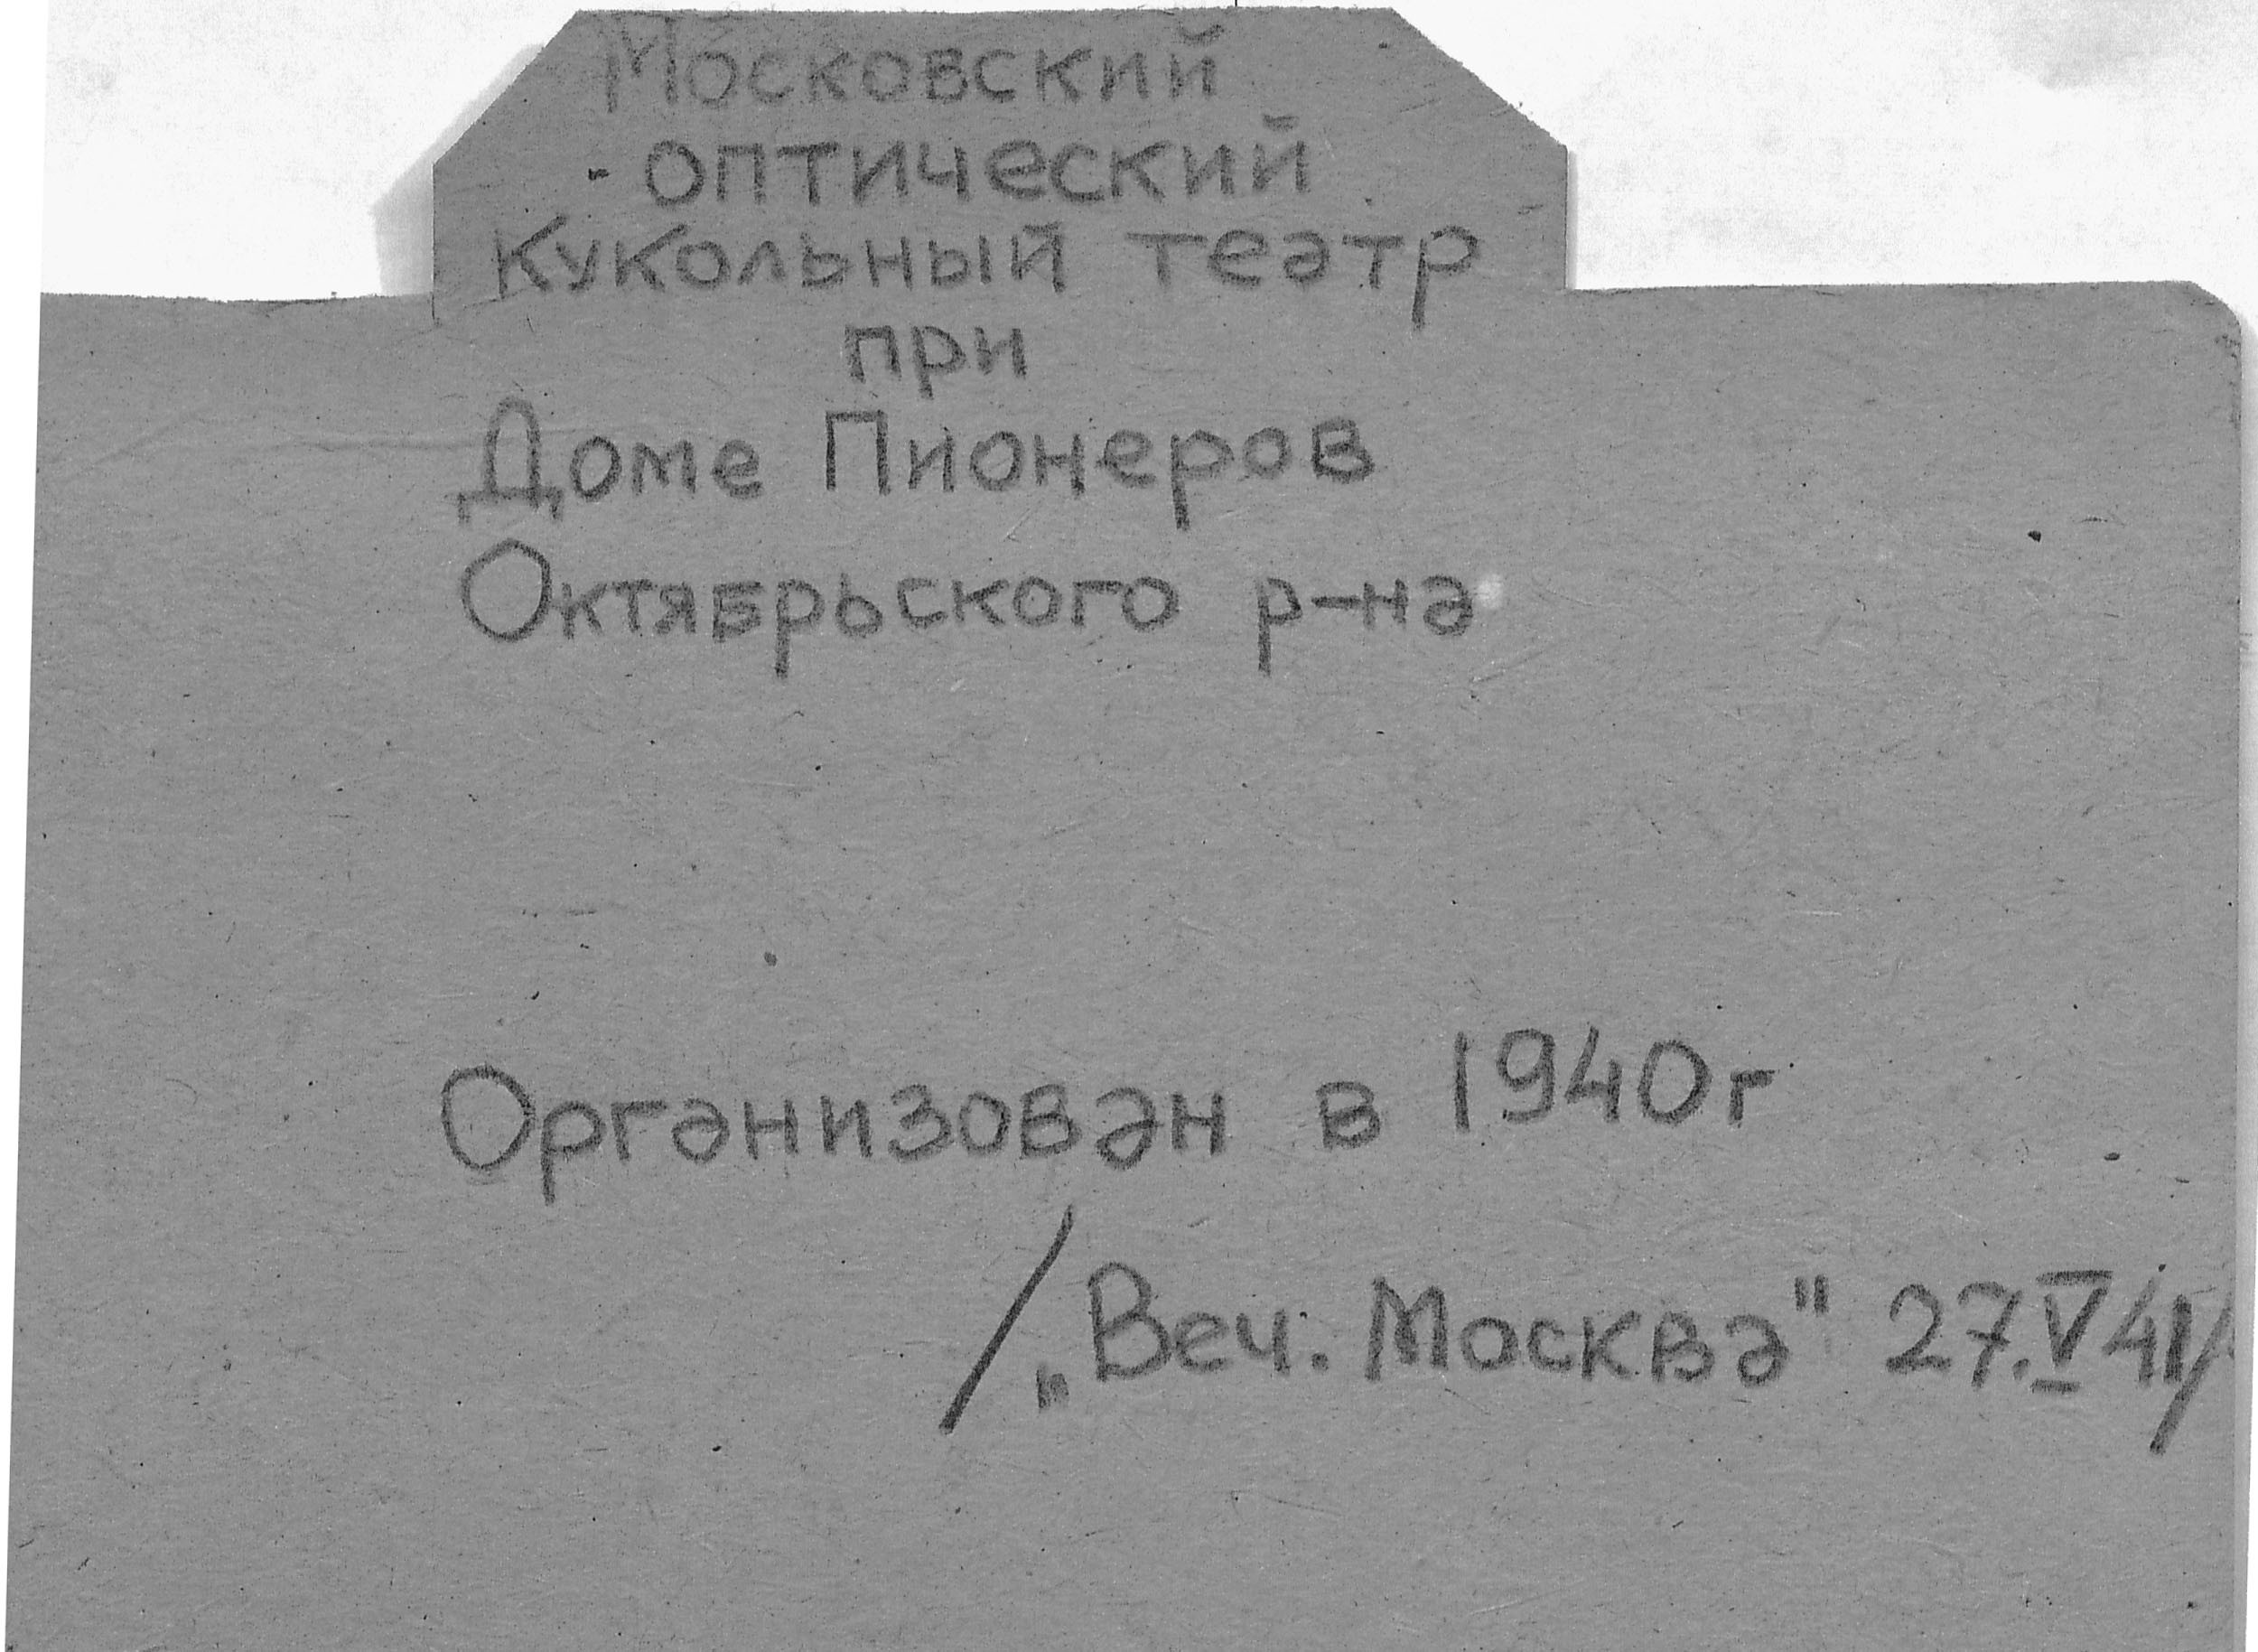 Московский
оптический
кукольный театр
при
Доме Пионеров
Октябрьского р-на
Организован в 1940г
/„Веч. Москва" 27.V 41/